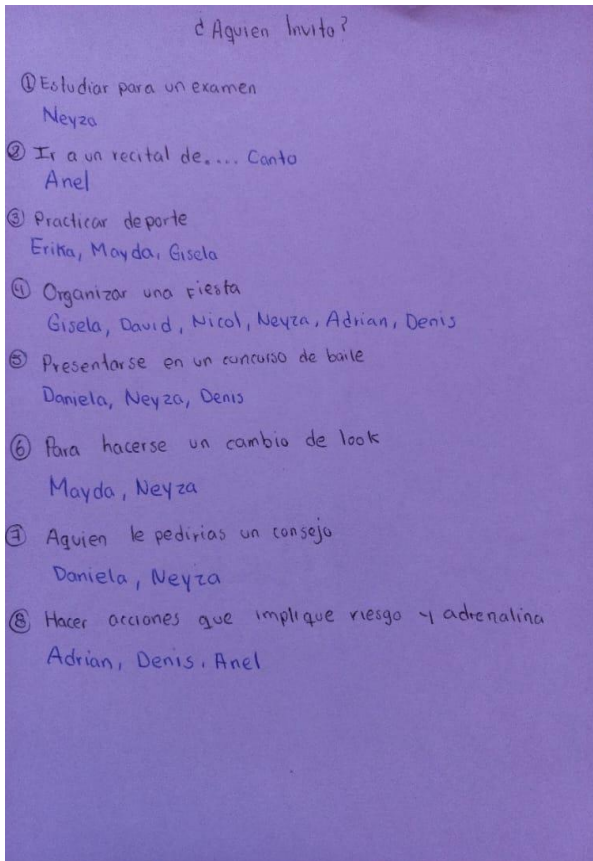 ¿Aquien Invito?
① Estudiar para un examen
Neyza
② Ir a un recital de.... Canto
Anel
③ Practicar deporte
Erika, Mayda, Gisela
④ Organizar una Fiesta
Gisela, David, Nicol, Neyza, Adrian, Denis
⑤ Presentarse en un concurso de baile
Daniela, Neyza, Denis
⑥ Para hacerse un cambio de look
Mayda, Neyza
⑦ Aquien le pedirias un consejo
Daniela, Neyza
⑧ Hacer acciones que implique riesgo y adrenalina
Adrian, Denis, Anel